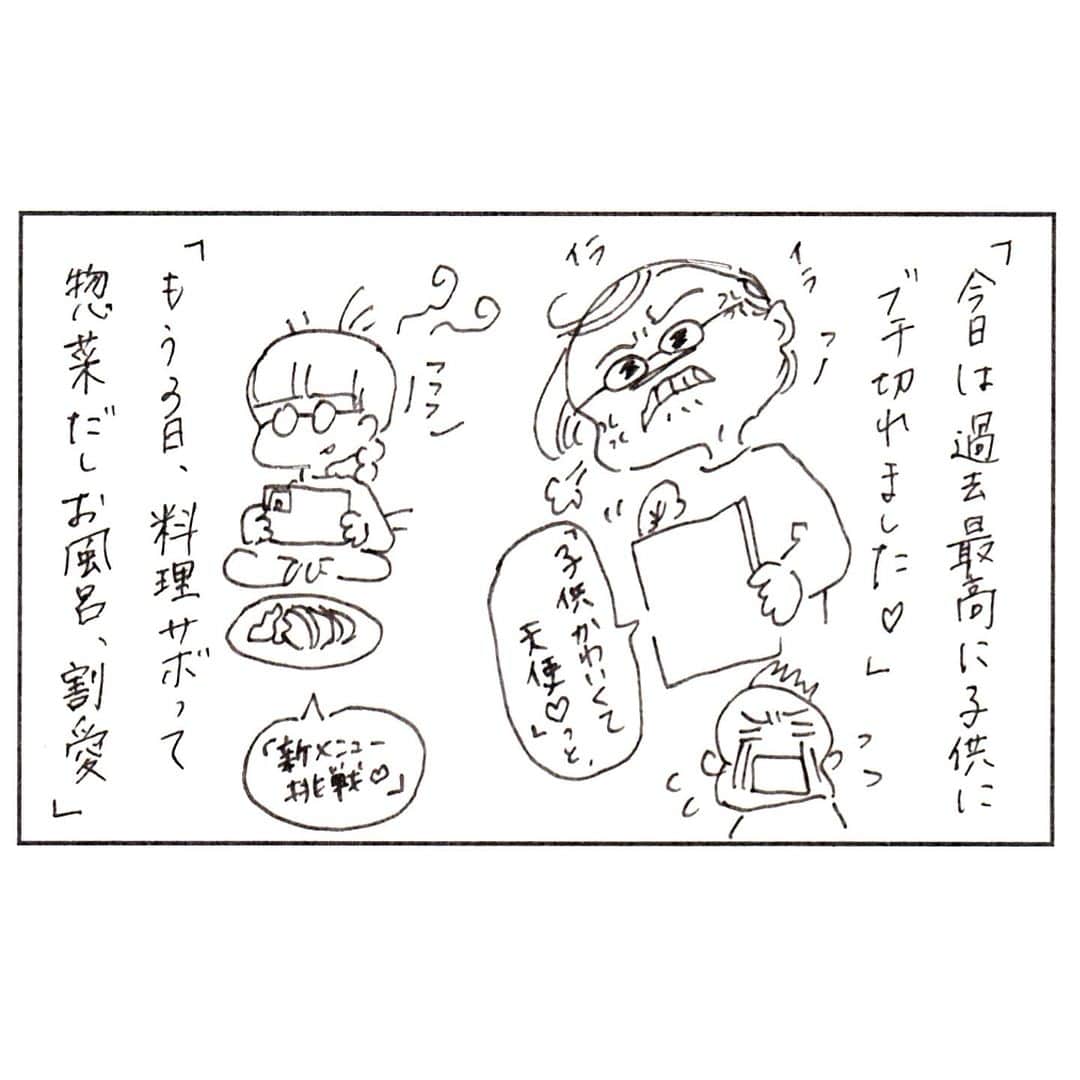 「今日は過去最高に子供に
ブチ切れました♡」
イラ
イラ
「子供かわいくて
天使♡っと、」
「もう3日、料理サボって
惣菜だしお風呂、割愛」
「新メニュー
挑戦♡」